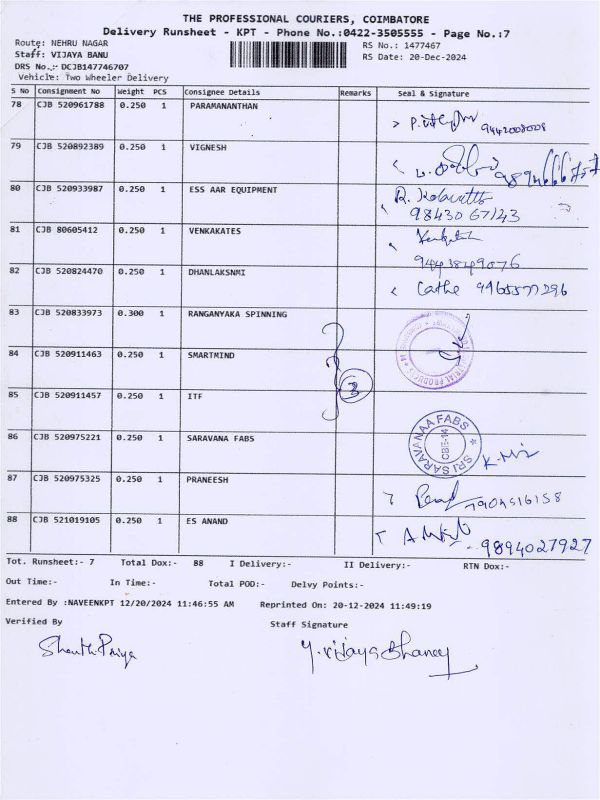 THE PROFESSIONAL COURIERS, COIMBATORE
Delivery Runsheet - KPT - Phone No.:0422-3505555 - Page No.:7
Route: NEHRU NAGAR RS No.: 1477467
Staff: VIJAYA BANU RS Date: 20-Dec-2024
DRS No.:- DCJB147746707
Vehicle: Two Wheeler Delivery
S No Consignment No Weight PCS Consignee Details Remarks Seal & Signature
78 CJB 520961788 0.250 1 PARAMANANTHAN
9442008008
79 CJB 520892389 0.250 1 VIGNESH
80 CJB 520933987 0.250 1 ESS AAR EQUIPMENT
98430 67143
81 CJB 80605412 0.250 1 VENKAKATES
82 CJB 520824470 0.250 1 DHANLAKSNMI
Cathe 9965577296
83 CJB 520833973 0.300 1 RANGANYAKA SPINNING
84 CJB 520911463 0.250 1 SMARTMIND
3
85 CJB 520911457 0.250 1 ITF
86 CJB 520975221 0.250 1 SARAVANA FABS
SRI SARAVANAA FABS
CBE-14
87 CJB 520975325 0.250 1 PRANEESH
7904516158
88 CJB 521019105 0.250 1 ES ANAND
9894027927
Tot. Runsheet:- 7 Total Dox:- 88 I Delivery:- II Delivery:- RTN Dox:-
Out Time:- In Time:- Total POD:- Delvy Points:-
Entered By :NAVEENKPT 12/20/2024 11:46:55 AM Reprinted On: 20-12-2024 11:49:19
Verified By Staff Signature
Shanthi Priya Y. Vijaya Bhaney